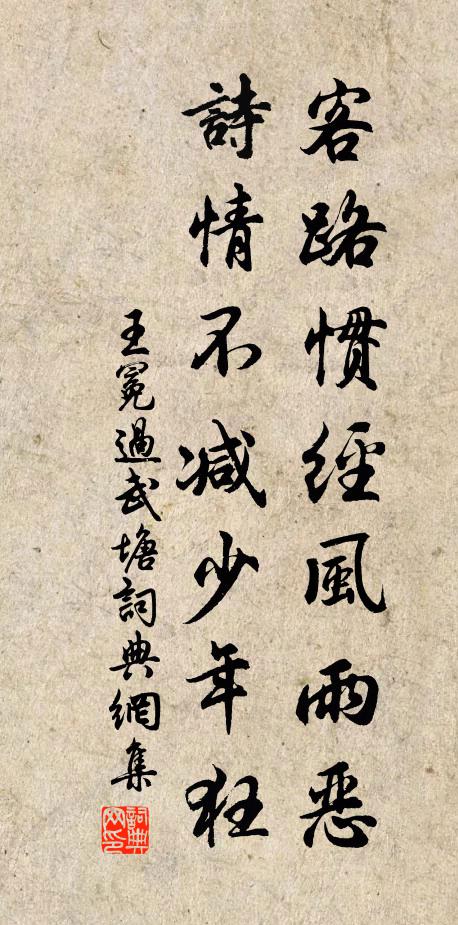 客路慣經風雨惡
詩情不減少年狂
王冕過武塘詞典網集
詞典網印